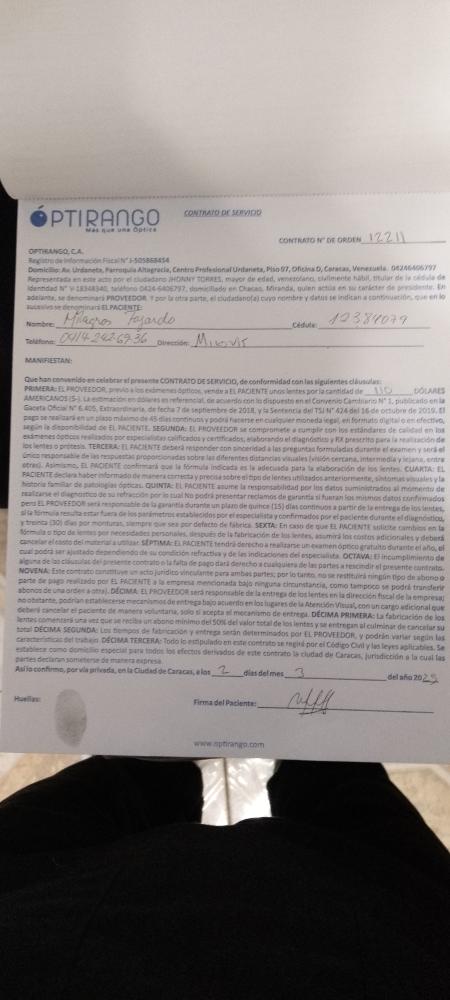 OPTIRANGO
Más que una Óptica
CONTRATO DE SERVICIO
CONTRATO N° DE ORDEN 12211
OPTIRANGO, C.A.
Registro de Información Fiscal N° J-505868454
Domicilio: Av. Urdaneta, Parroquia Altagracia, Centro Profesional Urdaneta, Piso 07, Oficina D, Caracas, Venezuela. 04246406797
Representada en este acto por el ciudadano JHONNY TORRES, mayor de edad, venezolano, civilmente hábil, titular de la cédula de
Identidad N° V-18348340, teléfono 0424-6406797, domiciliado en Chacao, Miranda, quien actúa en su carácter de presidente. En
adelante, se denominará PROVEEDOR. Y por la otra parte, el ciudadano(a) cuyo nombre y datos se indican a continuación, que en lo
sucesivo se denominará EL PACIENTE:
Nombre: Milagros Fajardo Cédula: 12384079
Teléfono: 0414 2426936 Dirección:
MANIFIESTAN:
Que han convenido en celebrar el presente CONTRATO DE SERVICIO, de conformidad con las siguientes cláusulas:
PRIMERA: EL PROVEEDOR, previo a los exámenes ópticos, vende a EL PACIENTE unos lentes por la cantidad de 110 DÓLARES
AMERICANOS ($-). La estimación en dólares es referencial, de acuerdo con lo dispuesto en el Convenio Cambiario N° 1, publicado en la
Gaceta Oficial N° 6.405, Extraordinaria, de fecha 7 de septiembre de 2018, y la Sentencia del TSJ N° 424 del 16 de octubre de 2019. El
pago se realizará en un plazo máximo de 45 días continuos y podrá hacerse en cualquier moneda legal, en formato digital o en efectivo,
según la disponibilidad de EL PACIENTE. SEGUNDA: EL PROVEEDOR se compromete a cumplir con los estándares de calidad en los
exámenes ópticos realizados por especialistas calificados y certificados, elaborando el diagnóstico y RX prescrito para la realización de
los lentes o prótesis. TERCERA: EL PACIENTE deberá responder con sinceridad a las preguntas formuladas durante el examen y será el
único responsable de las respuestas proporcionadas sobre las diferentes distancias visuales (visión cercana, intermedia y lejana, entre
otras). Asimismo, EL PACIENTE confirmará que la fórmula indicada es la adecuada para la elaboración de los lentes. CUARTA: EL
PACIENTE declara haber informado de manera correcta y precisa sobre el tipo de lentes utilizados anteriormente, síntomas visuales y la
historia familiar de patologías ópticas. QUINTA: EL PACIENTE asume la responsabilidad por los datos suministrados al momento de
realizarse el diagnostico de su refracción por lo cual No podrá presentar reclamos de garantía si fueran los mismos datos confirmados
pero EL PROVEEDOR será responsable de la garantía durante un plazo de quince (15) días continuos a partir de la entrega de los lentes,
si la fórmula resulta estar fuera de los parámetros establecidos por el especialista y confirmados por el paciente durante el diagnóstico,
y treinta (30) días por monturas, siempre que sea por defecto de fábrica. SEXTA: En caso de que EL PACIENTE solicite cambios en la
fórmula o tipo de lentes por necesidades personales, después de la fabricación de los lentes, asumirá los costos adicionales y deberá
cancelar el costo del material a utilizar. SÉPTIMA: EL PACIENTE tendrá derecho a realizarse un examen óptico gratuito durante el año, el
cual podrá ser ajustado dependiendo de su condición refractiva y de las indicaciones del especialista. OCTAVA: El incumplimiento de
alguna de las cláusulas del presente contrato o la falta de pago dará derecho a cualquiera de las partes a rescindir el presente contrato.
NOVENA: Este contrato constituye un acto jurídico vinculante para ambas partes; por lo tanto, no se restituirá ningún tipo de abono o
parte de pago realizado por EL PACIENTE a la empresa mencionada bajo ninguna circunstancia, como tampoco se podrá transferir
abonos de una orden a otra). DÉCIMA: EL PROVEEDOR será responsable de la entrega de los lentes en la dirección fiscal de la empresa;
no obstante, podrían establecerse mecanismos de entrega bajo acuerdo en los lugares de la Atención Visual, con un cargo adicional que
deberá cancelar el paciente de manera voluntaria, solo si acepta el mecanismo de entrega. DÉCIMA PRIMERA: La fabricación de los
lentes comenzará una vez que se reciba un abono mínimo del 50% del valor total de los lentes y se entregan al culminar de cancelar su
total DÉCIMA SEGUNDA: Los tiempos de fabricación y entrega serán determinados por EL PROVEEDOR, y podrán variar según las
características del trabajo. DÉCIMA TERCERA: Todo lo estipulado en este contrato se regirá por el Código Civil y las leyes aplicables. Se
establece como domicilio especial para todos los efectos derivados de este contrato la ciudad de Caracas, jurisdicción a la cual las
partes declaran someterse de manera expresa.
Así lo confirmo, por vía privada, en la Ciudad de Caracas, a los 2 días del mes 3 del año 2025
Huellas:
Firma del Paciente:
www.optirango.com